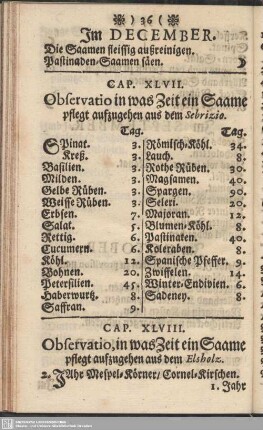 ) 36 (
Im DECEMBER.
Die Saamen fleissig außreinigen.
Pastinaden-Saamen säen.
CAP. XLVII.
Observatio in was Zeit ein Saame
pflegt aufzugehen aus dem Sebrizio.
Tag.
Spinat. 3.
Kreß. 3.
Basilien. 3.
Milden. 3.
Gelbe Rüben. 3.
Weisse Rüben. 3.
Erbsen. 7.
Salat. 5.
Rettig. 6.
Cucumern. 6.
Köhl. 12.
Bohnen. 20.
Petersilien. 45.
Haberwurtz. 8.
Saffran. 9.
Tag.
Römisch-Köhl. 34.
Lauch. 8.
Rothe Rüben. 30.
Magsamen. 40.
Spargen. 90.
Seleri. 20.
Majoran. 12.
Blumen-Köhl. 8.
Pastinaten. 40.
Koleraben. 8.
Spanische Pfeffer. 9.
Zwiffelen. 14.
Winter-Endivien. 6.
Sadeney. 8.
CAP. XLVIII.
Observatio, in was Zeit ein Saame
pflegt aufzugehen aus dem Elsholz.
2. Jahr Mespel-Körner, Cornel-Kirschen.
1. Jahr